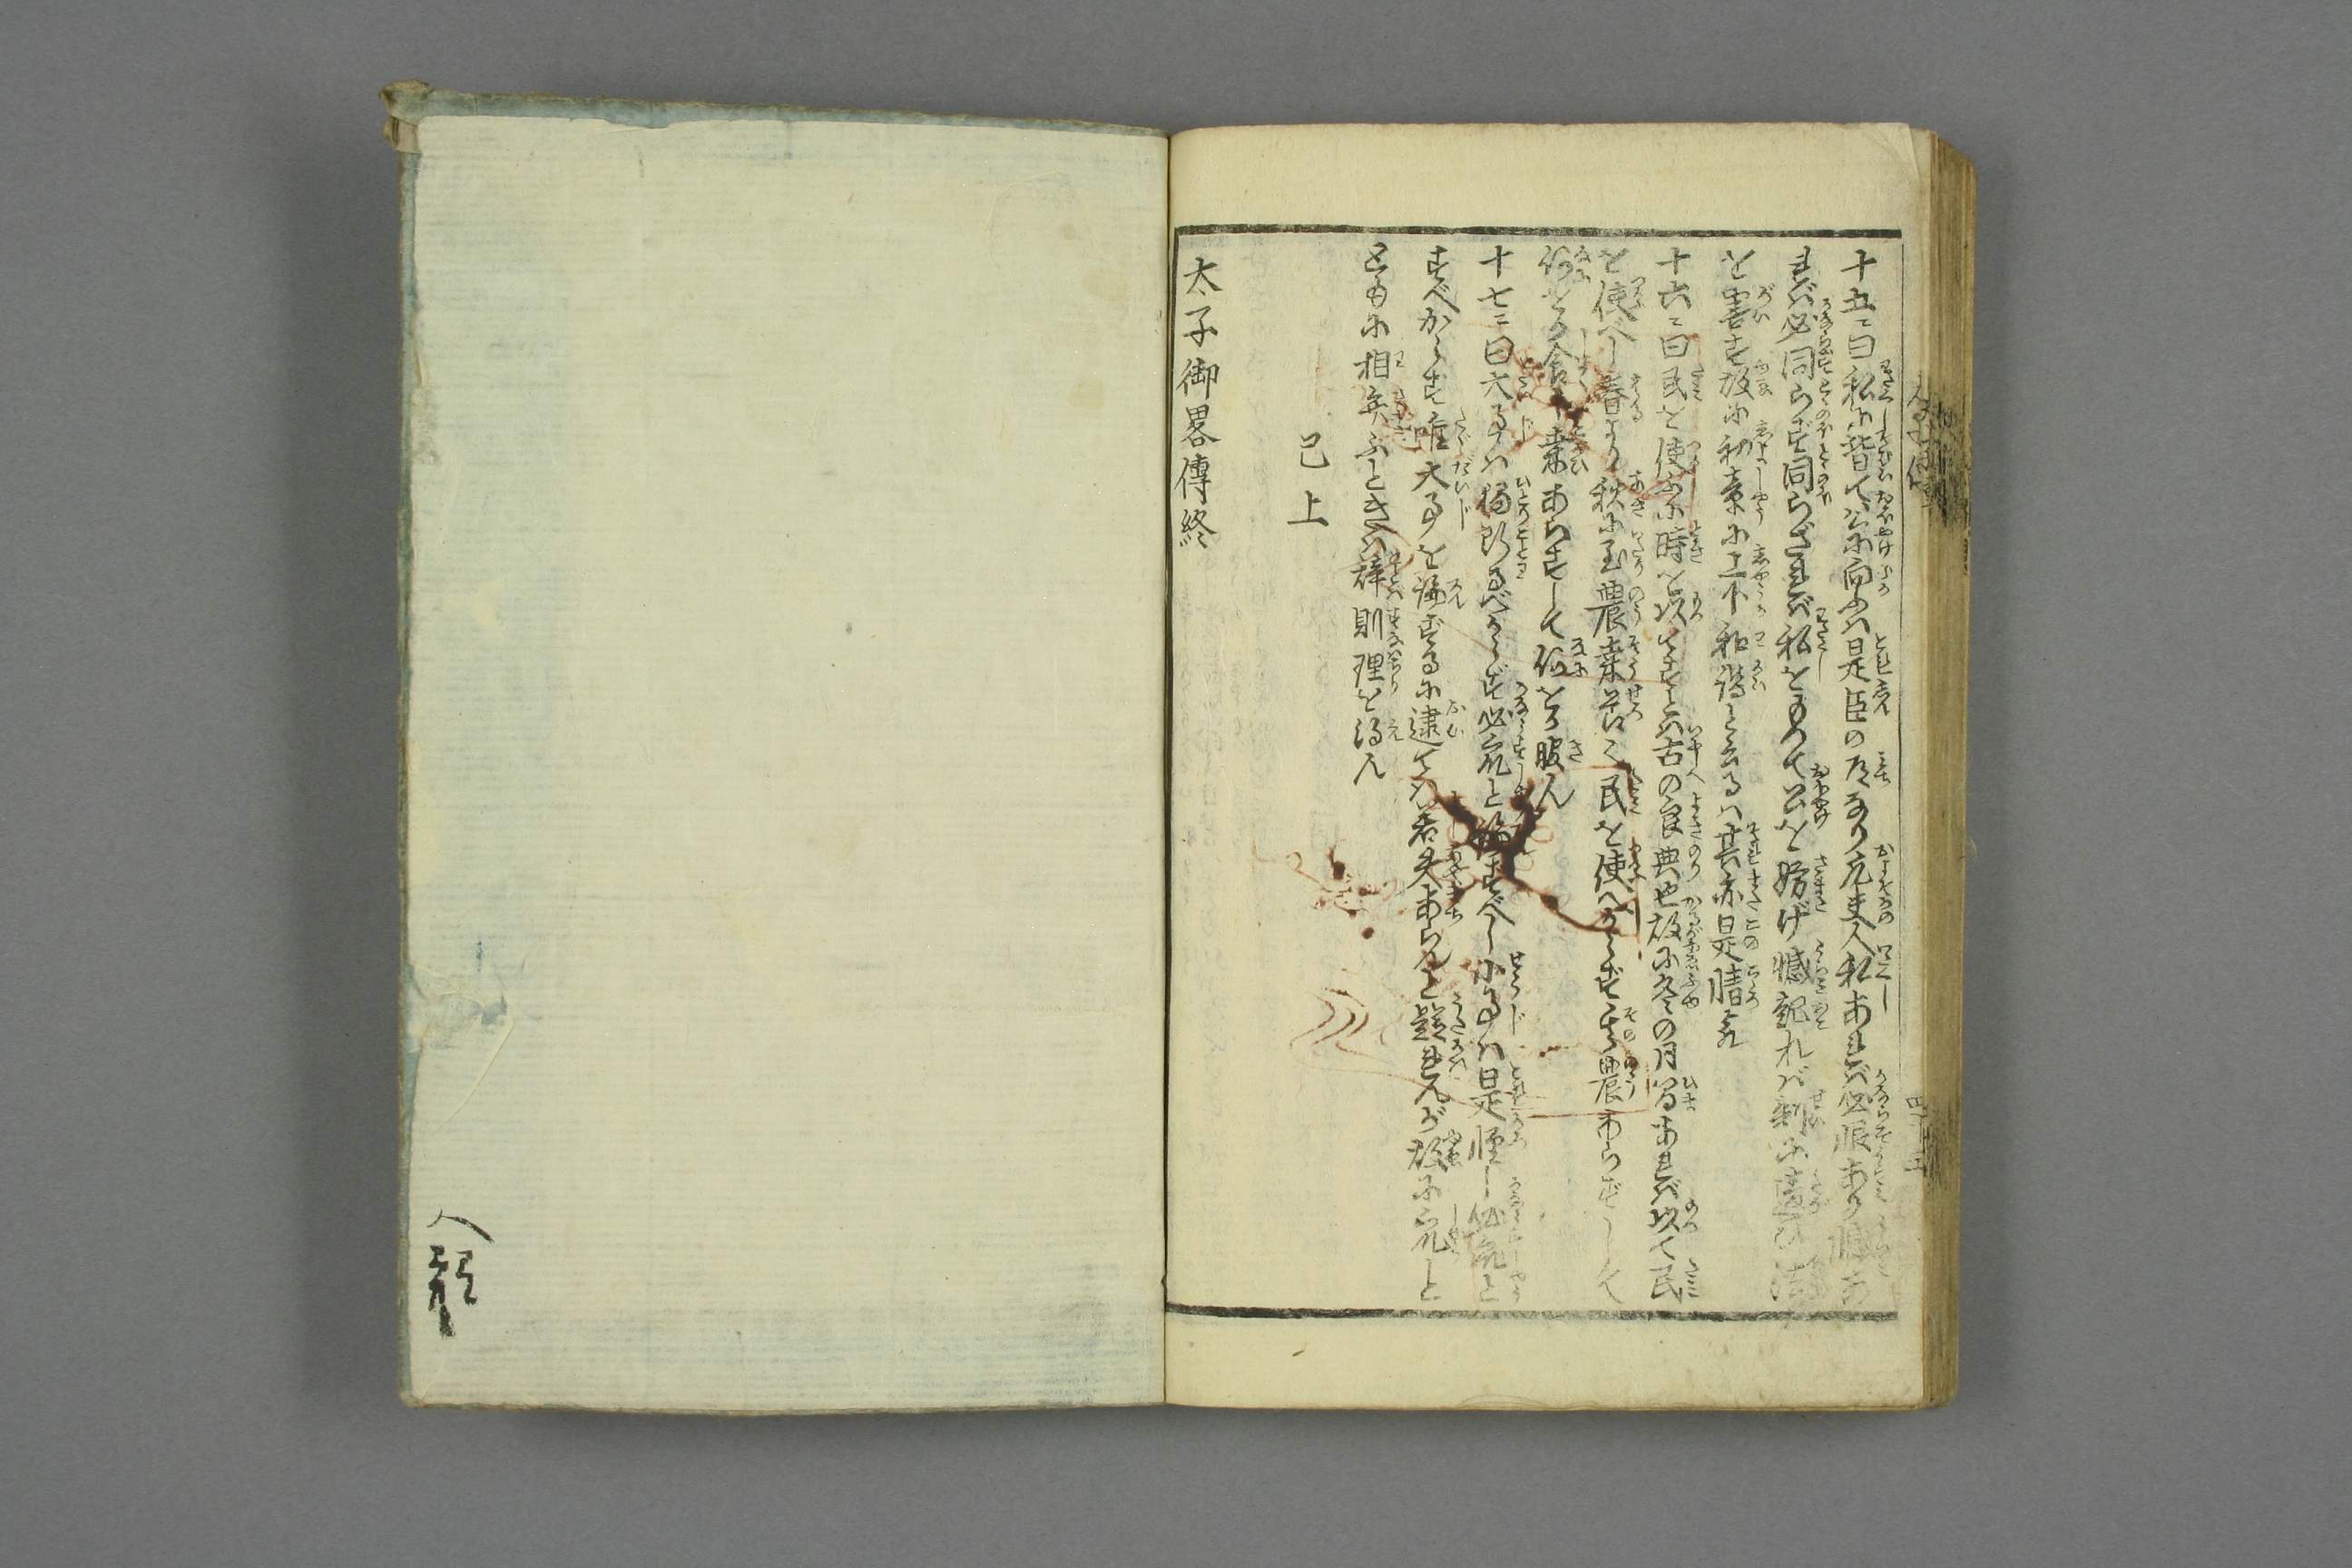 十五ニ曰私に背て公に向ふハ是臣の道なり凡夫人私あれバ必恨あり憾あ
れバ必同らず同らざれバ私をもつて公を妨げ憾記れバ制に違ひ法
を害す故に初章に上下和諧と云るハ其亦是情歟
十六ニ曰民を使ふに時を以てすとハ古の良典也故に冬の月間あれバ以て民
を使べし春より秋に至農桑節之民を使べからず其農あらずして
何をか食ん桑あらずして何をか服ん
十七ニ曰大事ハ獨断るべからず必衆と論ずべし小事ハ是軽し必衆と
すべからず唯大事を論ずるに逮てハ若失あらんと疑れんが故に衆と
ともに相弁ふときハ辞則理を得ん
已上
太子御畧傳終